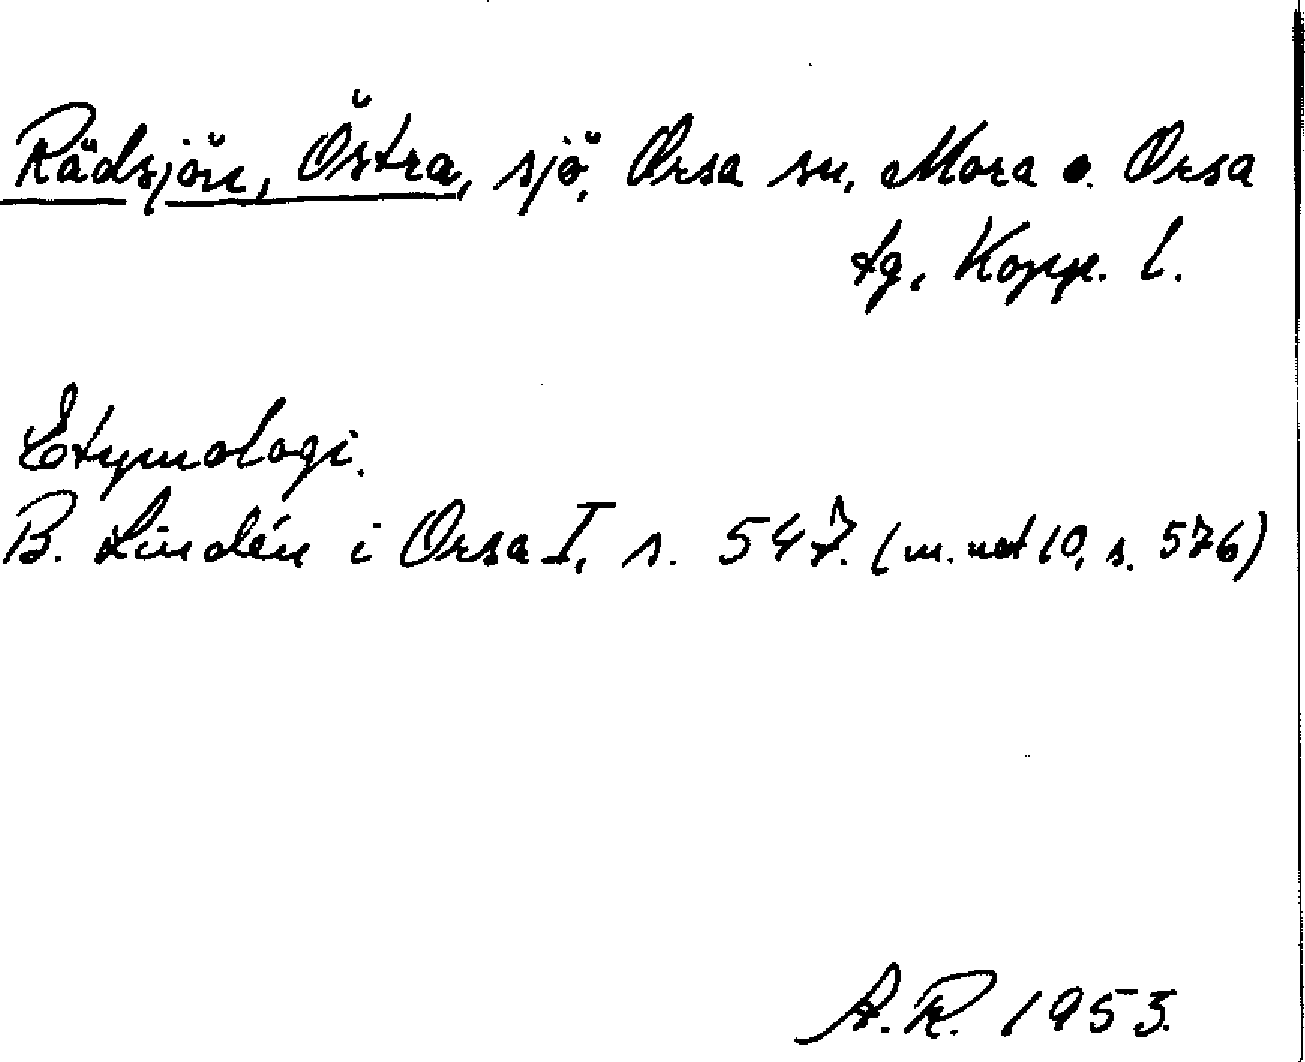 Rädsjön, Östra, sjö, Orsa sn, Mora o. Orsa
tg, Kopp. l.
Etymologi.
B. Lindén i Orsa I, s. 547. (m. not 10, s. 576)
A.R. 1953.